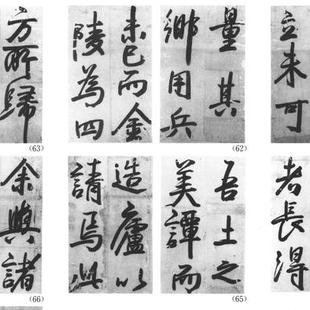 立未可
量其
鄉用兵
(62)
未已而金
陵為四
方所歸
(63)
者長得
吾土之
美譚而
(65)
造廬以
請焉此
余與諸
(66)